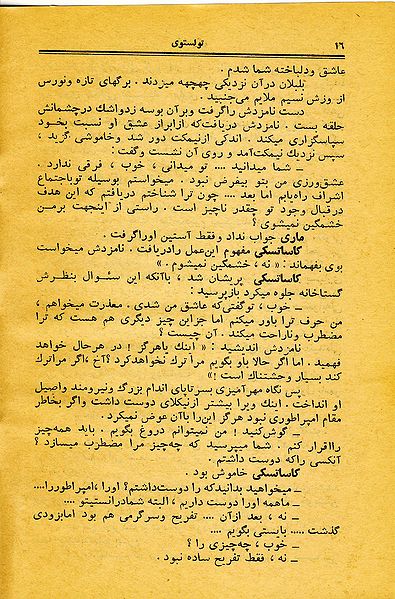 ۱۶
تولستوی
عاشق ودلباخته شما شدم .
بلبلان درآن نزدیکی چهچهه میزدند . برگهای تازه ونورس
از وزش نسیم ملایم می‌جنبید .
دست نامزدش راگرفت وبرآن بوسه زد‌واشك درچشمانش
حلقه بست . نامزدش دریافت‌که ازابراز عشق او نسبت بخود
سپاسگزاری میکند . اندکی ازنیمکت دور شد وخاموشی گزید ،
سپس نزدیك نیمکت‌آمد و روی آن نشست وگفت:
ــ شما میدانید .... تو میدانی ، خوب ، فرقی ندارد .
عشق‌ورزی من بتو بیغرض نبود . میخواستم بوسیله توباجتماع
اشراف راه‌یابم اما بعد .... چون ترا شناختم دریافتم که این هدف
درقبال وجود تو چقدر ناچیز است . راستی از اینجهت برمن
خشمگین نمیشوی ؟
ماری جواب نداد وفقط آستین اوراگرفت .
کاساتسکی مفهوم این‌عمل رادریافت . نامزدش میخواست
بوی بفهماند : « نه ، خشمگین نمیشوم . »
کاساتسکی پریشان شد ، باآنکه این سئوال بنظرش
گستاخانه جلوه میکرد بازپرسید :
ــ خوب ، توگفتی‌که عاشق من شدی . معذرت میخواهم ،
من حرف ترا باور میکنم اما جزاین چیز دیگری هم هست که ترا
مضطرب وناراحت میکند . آن چیست ؟
نامزدش اندیشید : « اینك یاهرگز ! در هرحال خواهد
فهمید . اما اگر حالا باو بگویم مرا ترك نخواهدکرد؟آخ ، اگر مراترك
کند بسیار وحشتناك است !»
پس نگاه مهرآمیزی بسرتاپای اندام بزرگ ونیرومند واصیل
او انداخت . اینك ویرا بیشتر ازنیکلای دوست داشت واگر بخاطر
مقام امپراطوری نبود هرگز این‌راباآن عوض نمیکرد.
ــ گوش‌کنید ! من نمیتوانم دروغ بگویم . باید همه‌چیز
رااقرار کنم . شما میپرسید که چه‌چیز مرا مضطرب میسازد ؟
آنکسی راکه دوست داشتم .
کاساتسکی خاموش بود .
ــ میخواهید بدانیدکه را دوست‌داشتم؟ اورا ، امپراطوررا....
ــ ماهمه اورا دوست داریم ، البته شمادرانستیتو ....
ــ نه ، بعد ازآن .... تفریح وسرگرمی هم بود امابزودی
گذشت ..... بایستی بگویم ....
ــ خوب ، چه‌چیزی را ؟
ــ نه ، فقط تفریح ساده نبود .